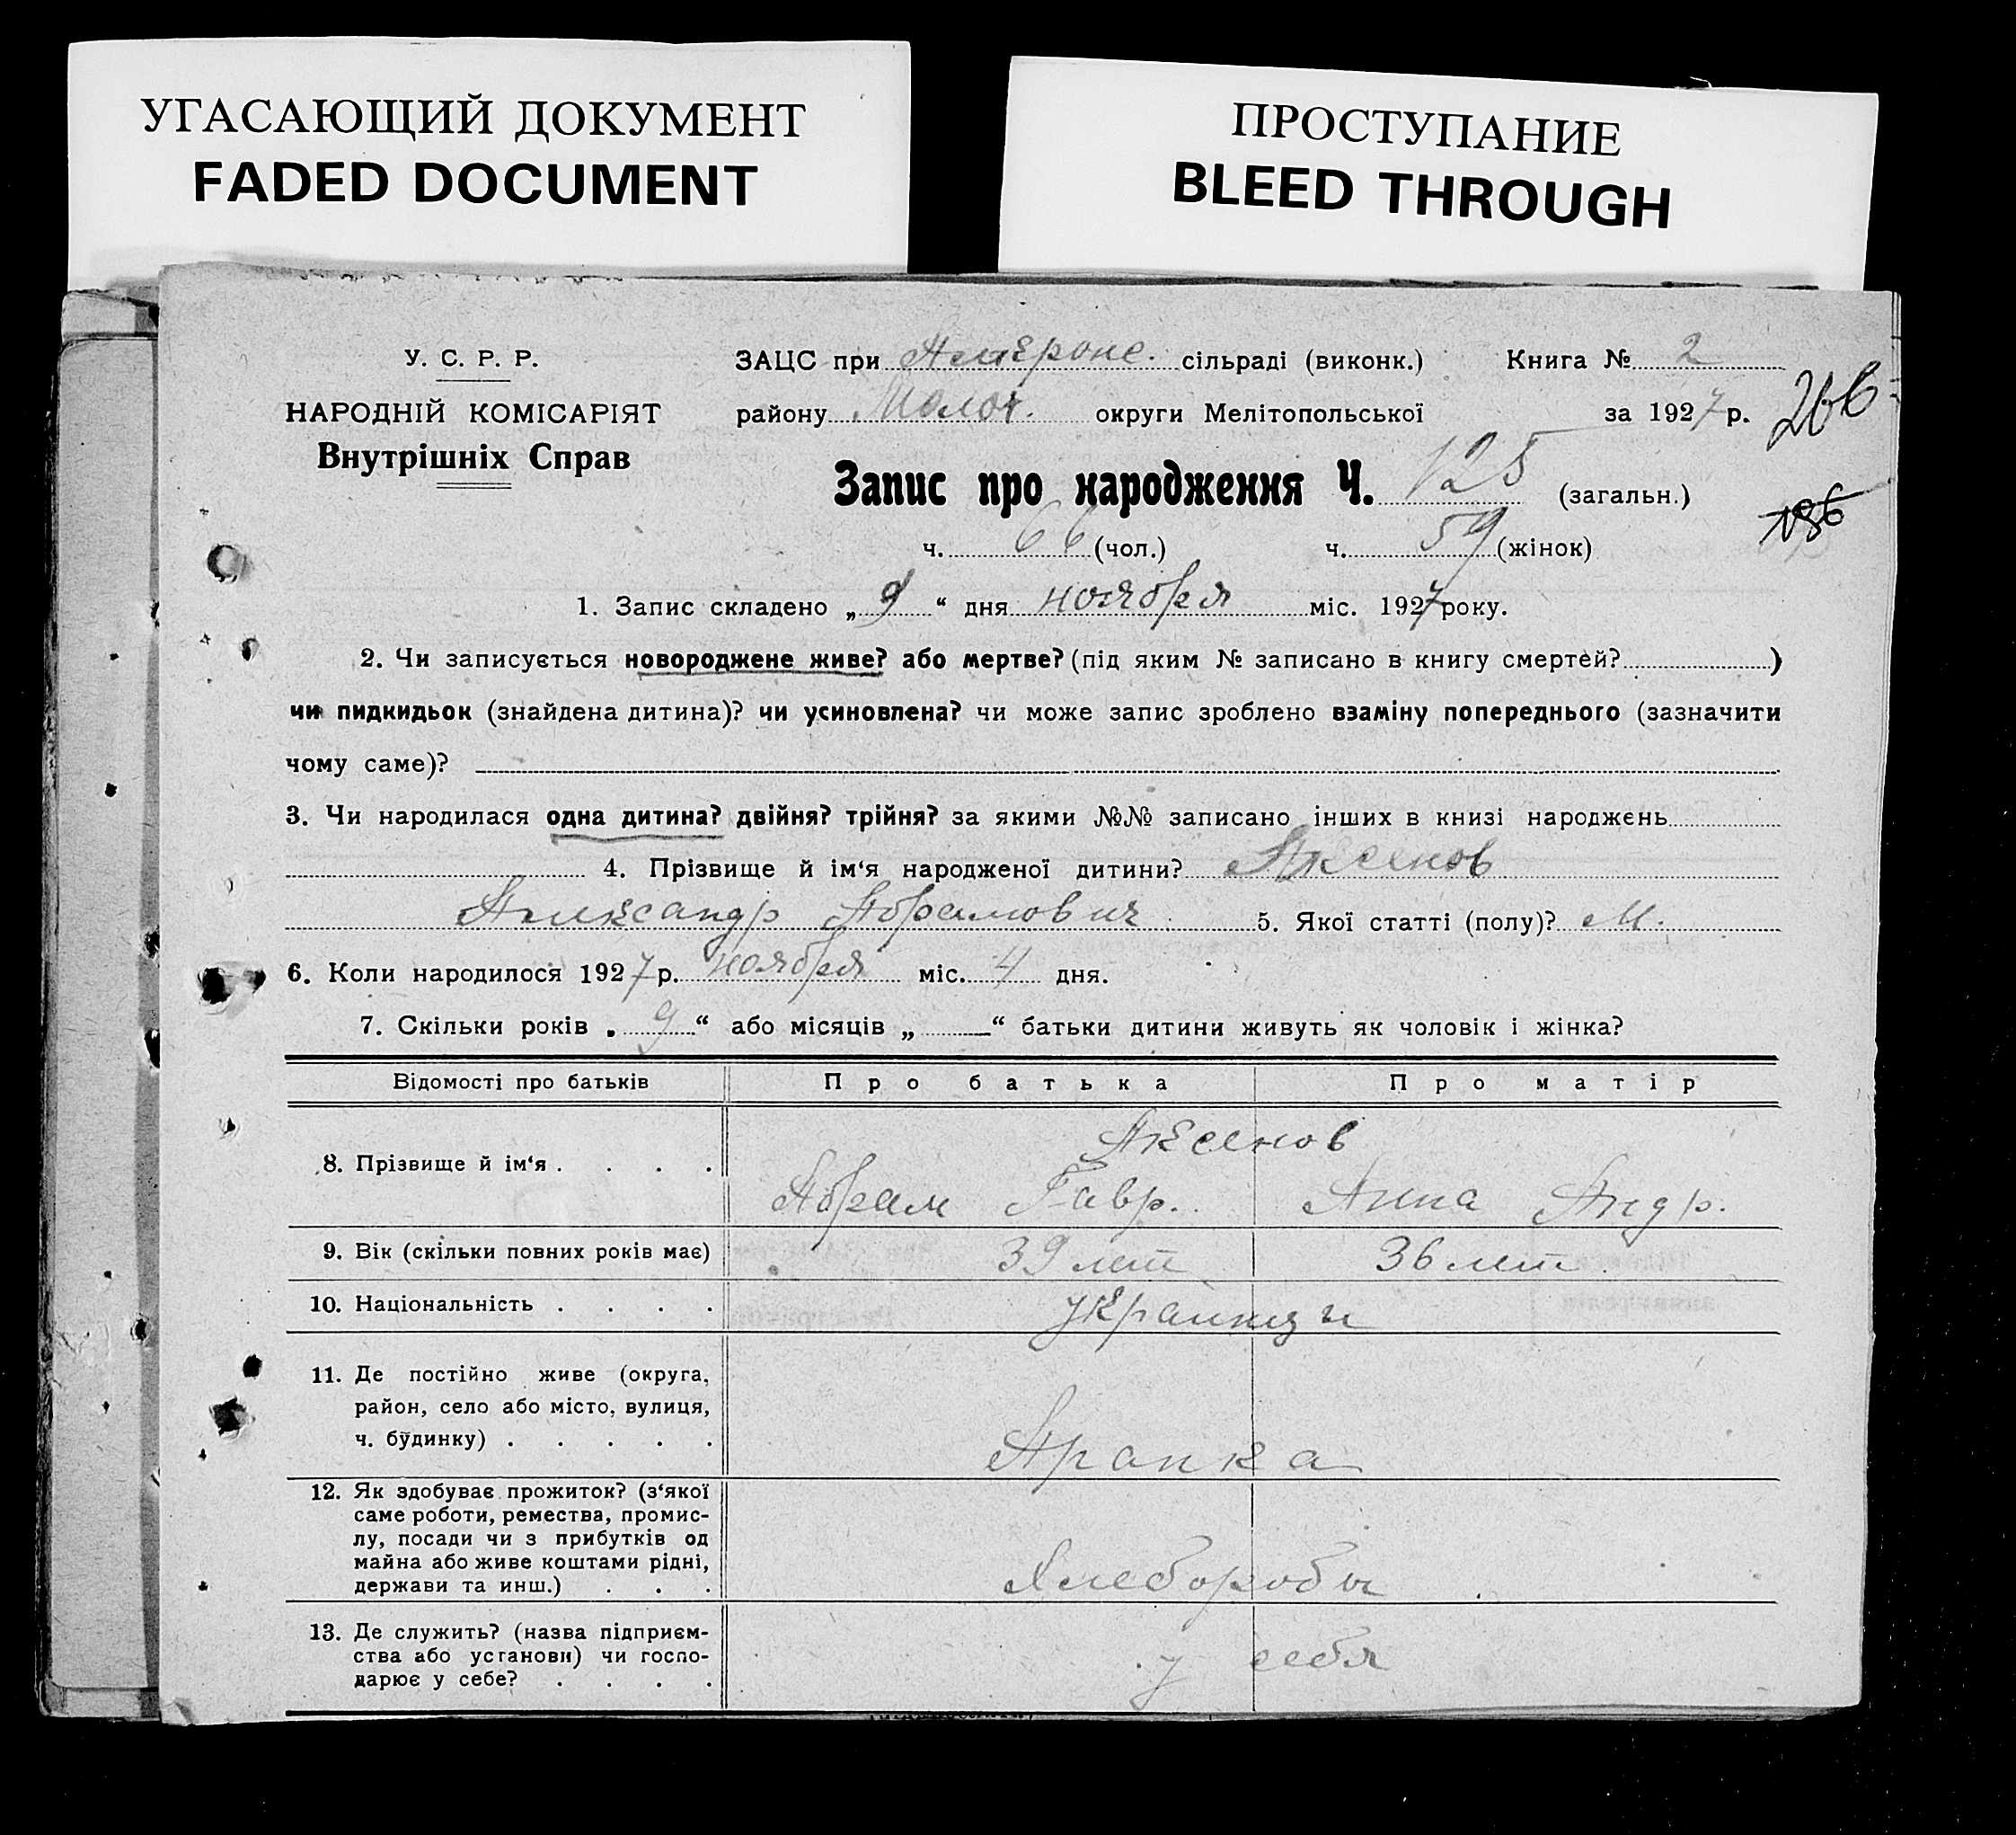 УГАСАЮЩИЙ ДОКУМЕНТ
FADED DOCUMENT
ПРОСТУПАНИЕ
BLEED THROUGH
У. С. Р. Р.
НАРОДНІЙ КОМІСАРІЯТ
Внутрішніх Справ
ЗАЦС при сільраді (виконк.) Книга № 2
району Молоч. округи Мелітопольської за 1927 р.
266
Запис про народження Ч. 125 (загальн.)
186
ч. 66 (чол.) ч. 59 (жінок)
1. Запис складено „ 9 “ дня ноября міс. 1927 року.
2. Чи записується новороджене живе? або мертве? (під яким № записано в книгу смертей? )
чи пидкидьок (знайдена дитина)? чи усиновлена? чи може запис зроблено взаміну попереднього (зазначити
чому саме)?
3. Чи народилася одна дитина? двійня? трійня? за якими №№ записано інших в книзі народжень
4. Прізвище й ім‘я народженої дитини? Аксенов
Александр Абрамович 5. Якої статті (полу)? М.
6. Коли народилося 1927 р. ноября міс. 4 дня.
7. Скільки років „ 9 “ або місяців „ “ батьки дитини живуть як чоловік і жінка?
Відомості про батьків Про батька Про матір
8. Прізвище й ім‘я . . . . Аксенов
Абрам Гавр. Анна Андр.
9. Вік (скільки повних років має) 39 лет 36 лет
10. Національність . . . . украинцы
11. Де постійно живе (округа,
район, село або місто, вулиця,
ч. будинку) . . . . .
12. Як здобуває прожиток? (з‘якої
саме роботи, ремества, промис-
лу, посади чи з прибутків од
майна або живе коштами рідні,
держави та инш.) . . .
Хлеборобы
13. Де служить? (назва підприєм-
ства або установи) чи госпо-
дарює у себе? . . . .
у себя